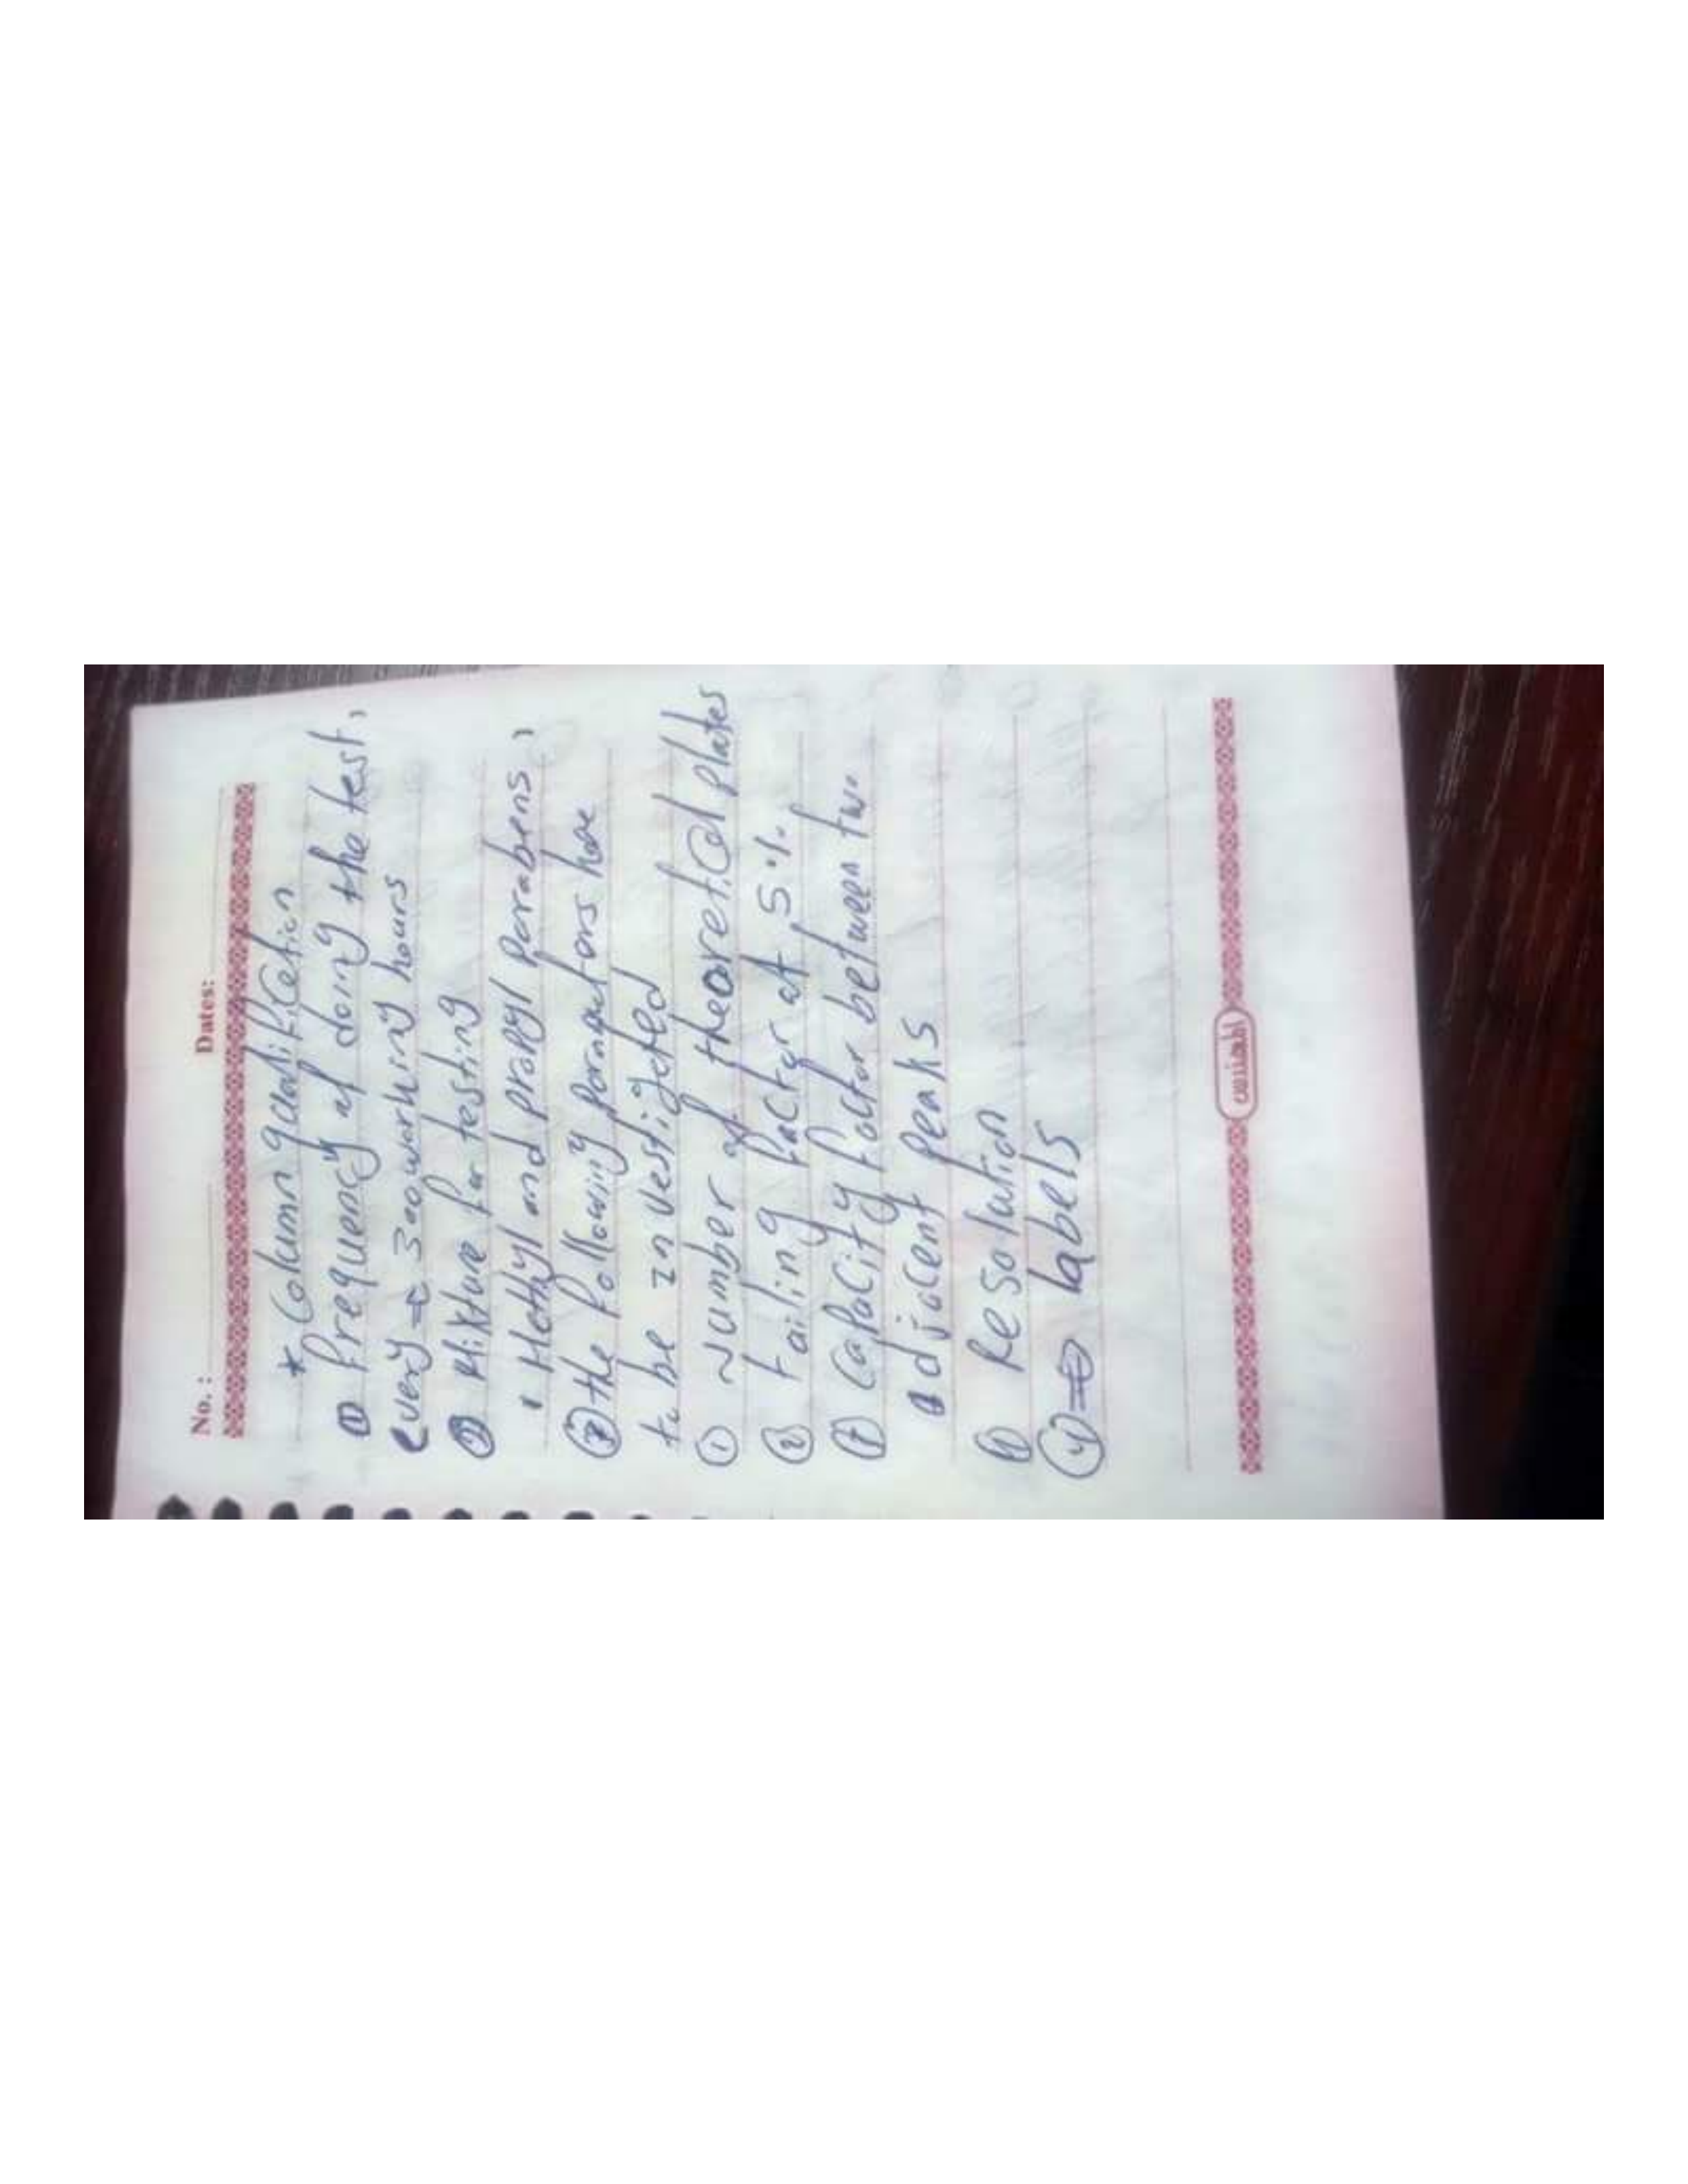 No.: Dates:
* Column qualification
① Frequency of doing the test,
every 300 working hours
② Mixture for testing
, Methyl and propyl parabens,
③ the following parameters have
to be investigated
① Number of theoretical plates
② tailing factor at 5%
③ capacity factor between two
adjacent peaks
④ Resolution
④ labels